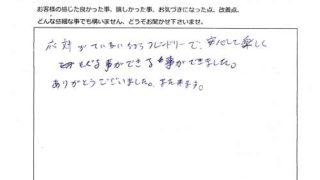 お客様の感じた良かった事、嬉しかった事、お気づきになった点、改善点、
どんな些細な事でも構いません、どうぞお聞かせ下さいませ。
応対がていねいながらフレンドリーで、安心して楽しく
事ができる事ができました。
ありがとうございました。また来ます。